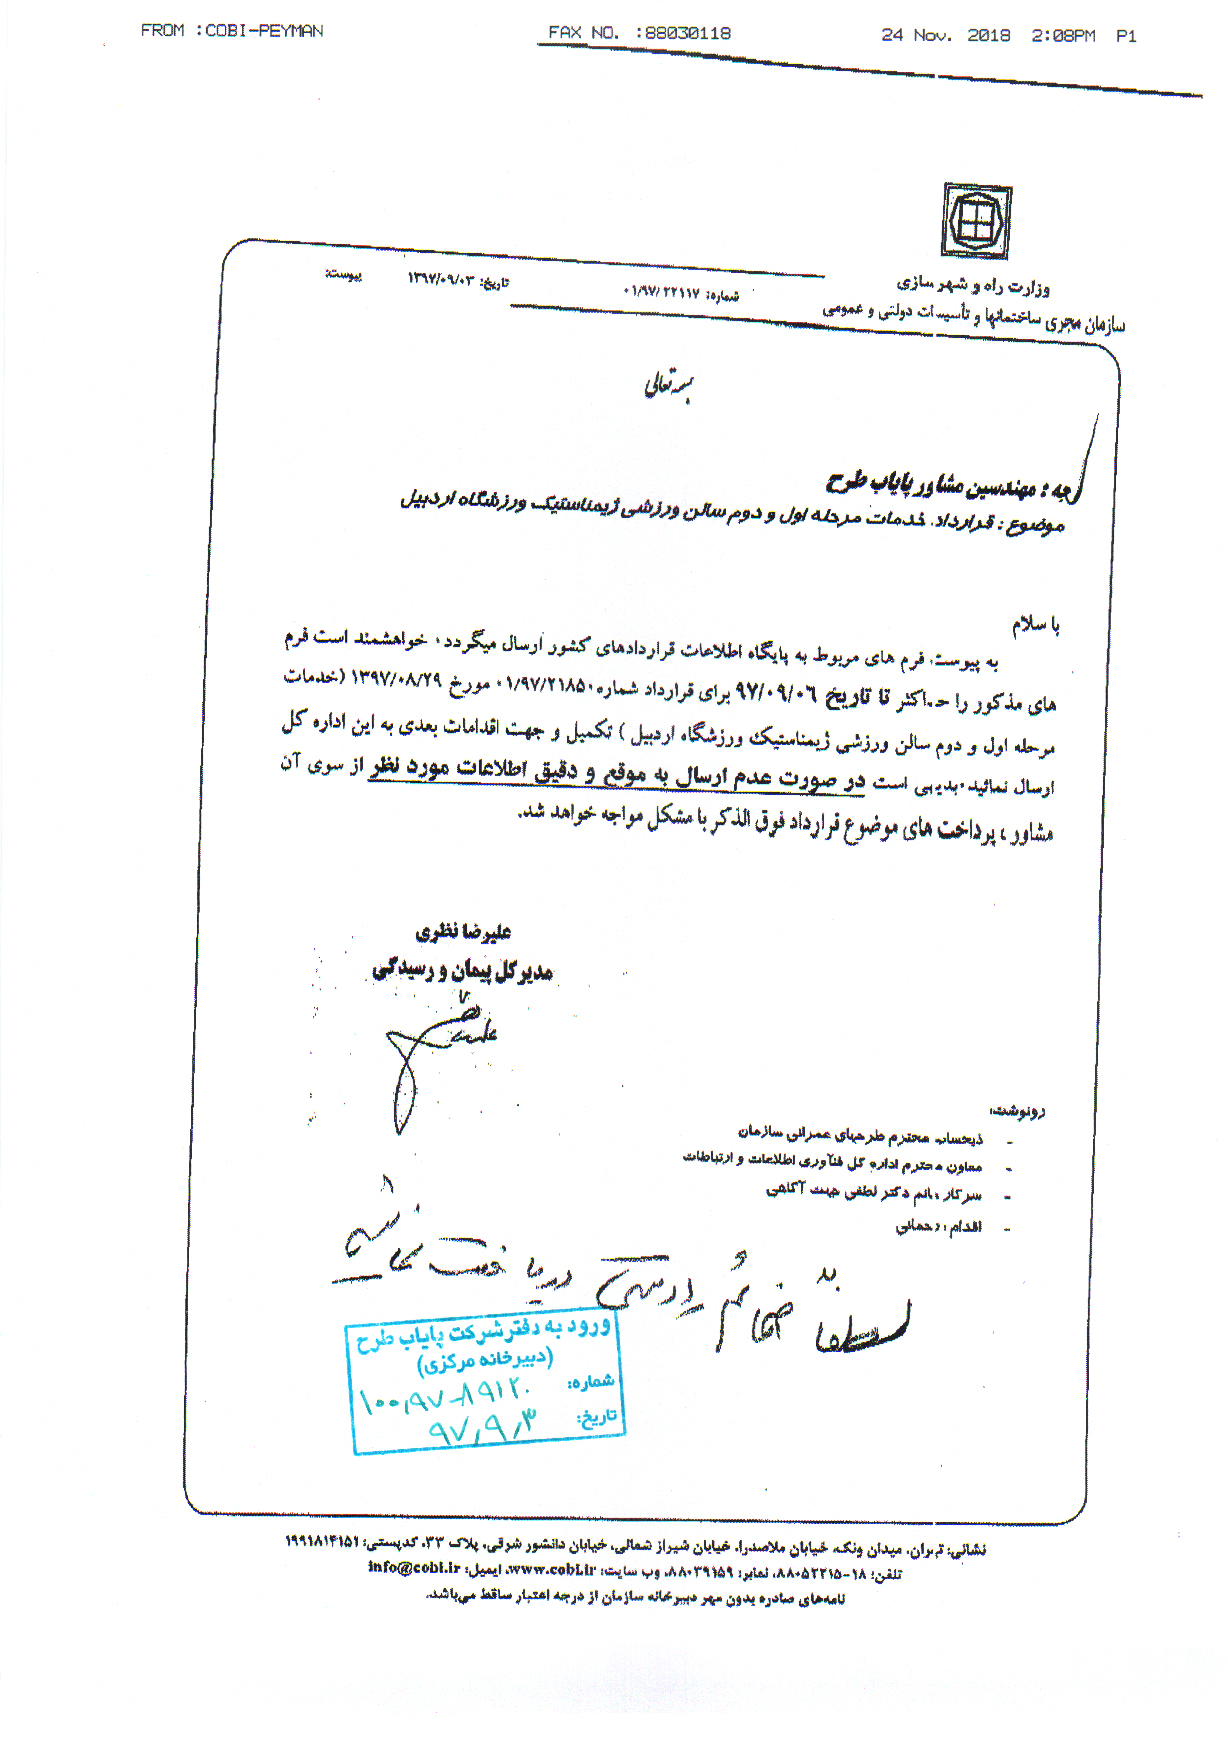 FROM :COBI-PEYMAN FAX NO. :88030118 24 Nov. 2018 2:08PM P1
وزارت راه و شهر سازی
سازمان مجری ساختمانها و تأسیسات دولتی و عمومی
شماره: ۰۱/۹۷/۲۲۱۱۷
تاریخ: ۱۳۹۷/۰۹/۰۳
پیوست:
بسمه تعالی
به : مهندسین مشاور پایاب طرح
موضوع : قرارداد خدمات مرحله اول و دوم سالن ورزشی ژیمناستیک ورزشگاه اردبیل
با سلام
به پیوست، فرم های مربوط به پایگاه اطلاعات قراردادهای کشور ارسال میگردد. خواهشمند است فرم
های مذکور را حداکثر تا تاریخ ۹۷/۰۹/۰۶ برای قرارداد شماره ۰۱/۹۷/۲۱۸۵۰ مورخ ۱۳۹۷/۰۸/۲۹ (خدمات
مرحله اول و دوم سالن ورزشی ژیمناستیک ورزشگاه اردبیل ) تکمیل و جهت اقدامات بعدی به این اداره کل
ارسال نمائید. بدیهی است در صورت عدم ارسال به موقع و دقیق اطلاعات مورد نظر از سوی آن
مشاور ، پرداخت های موضوع قرارداد فوق الذکر با مشکل مواجه خواهد شد.
علیرضا نظری
مدیر کل پیمان و رسیدگی
رونوشت:
- ذیحساب محترم طرحهای عمرانی سازمان
- معاون محترم اداره کل فنآوری اطلاعات و ارتباطات
- سرکار خانم دکتر لطفی جهت آگاهی
- اقدام : رحمانی
لطفا ضمائم را دریافت نمائید
ورود به دفتر شرکت پایاب طرح
(دبیرخانه مرکزی)
شماره: ۱۰۰,۹۷-۸۹۱۲۰
تاریخ: ۹۷,۹,۳
نشانی: تهران، میدان ونک، خیابان ملاصدرا، خیابان شیراز شمالی، خیابان دانشور شرقی، پلاک ۳۳، کدپستی: ۱۹۹۱۸۱۴۱۵۱
تلفن: ۱۸-۸۸۰۵۲۲۱۵، نمابر: ۸۸۰۳۹۱۵۹، وب سایت: www.cobi.ir، ایمیل: info@cobi.ir
نامه‌های صادره بدون مهر دبیرخانه سازمان از درجه اعتبار ساقط می‌باشد.